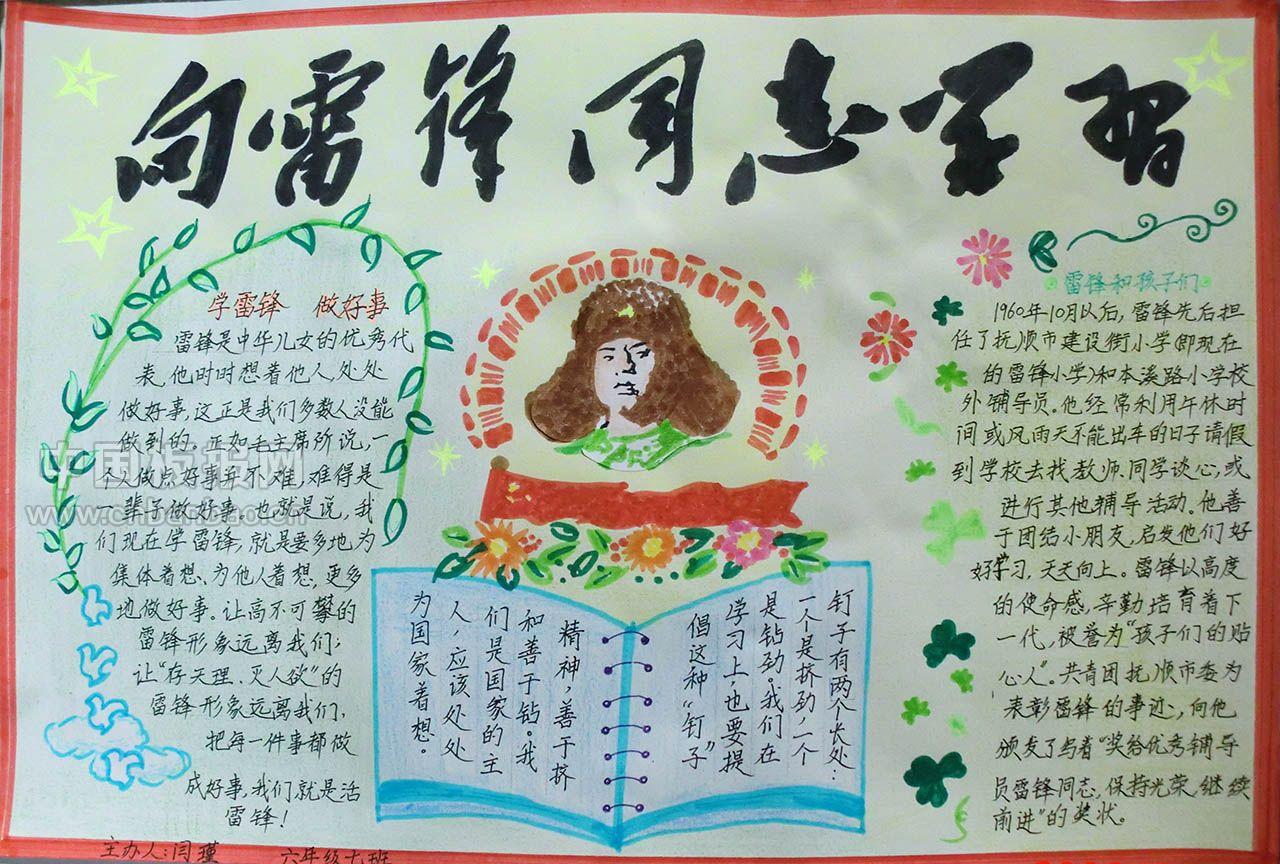 向雷锋同志学习
学雷锋 做好事
雷锋是中华儿女的优秀代
表,他时时想着他人,处处
做好事,这正是我们多数人没能
做到的。正如毛主席所说,一
个人做点好事并不难,难得是
一辈子做好事,也就是说,我
们现在学雷锋,就是要多地为
集体着想、为他人着想,更多
地做好事。让高不可攀的
雷锋形象远离我们;
让“存天理、灭人欲”的
雷锋形象远离我们,
把每一件事都做
成好事,我们就是活
雷锋!
主办人:闫瑾
六年级七班
钉子有两个长处:
一个是挤劲,一个
是钻劲。我们在
学习上也要提
倡这种“钉子”
精神,善于挤
和善于钻。我
们是国家的主
人,应该处处
为国家着想。
雷锋和孩子们
1960年10月以后,雷锋先后担
任了抚顺市建设街小学(即现在
的雷锋小学)和本溪路小学校
外辅导员。他经常利用午休时
间或风雨天不能出车的日子请假
到学校去找教师、同学谈心,或
进行其他辅导活动。他善
于团结小朋友,启发他们好
好学习,天天向上。雷锋以高度
的使命感,辛勤培育着下
一代,被誉为“孩子们的贴
心人”。共青团抚顺市委为
表彰雷锋的事迹,向他
颁发了写着“奖给优秀辅导
员雷锋同志,保持光荣,继续
前进”的奖状。
中国板报网
www.chbanbao.cn